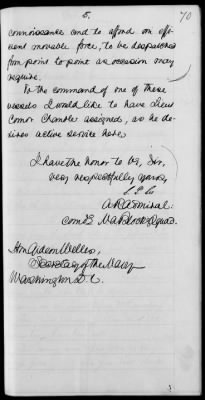 5.
70
connoissance and to afford an effi-
cient movable force, to be despatched
from point to point as occasion may
require.
To the command of one of these
vessels I would like to have Lieut
Comdr Chambers assigned, as he de-
sires active service here.
I have the honor to be, Sir,
very respectfully yours,
A.R. Admiral.
Comdg N. A. Block. Squad.
Hon Gideon Welles,
Secretary of the Navy
Washington D.C.